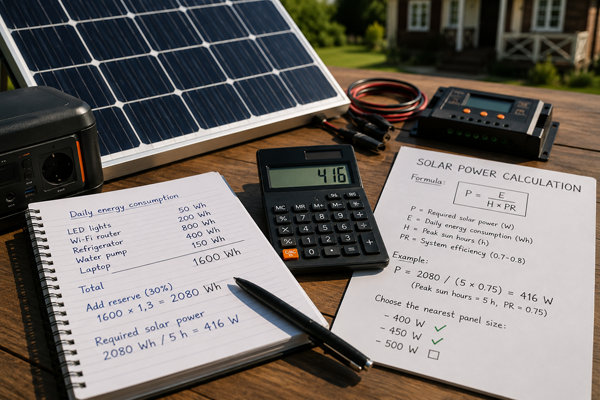 Daily energy consumption
LED lights 50 Wh
Wi-Fi router 200 Wh
Refrigerator 800 Wh
Water pump 400 Wh
Laptop 150 Wh
Total 1600 Wh
Add reserve (30%)
1600 × 1,3 = 2080 Wh
Required solar power
2080 Wh / 5 h = 416 W
416
SOLAR POWER CALCULATION
Formula:
P = E / H × PR
P = Required solar power (W)
E = Daily energy consumption (Wh)
H = Peak sun hours (h)
PR = System efficiency (0.7–0.8)
Example:
P = 2080 / (5 × 0.75) = 416 W
(Peak sun hours = 5 h, PR = 0.75)
Choose the nearest panel size:
– 400 W ✓
– 450 W ✓
– 500 W ☐